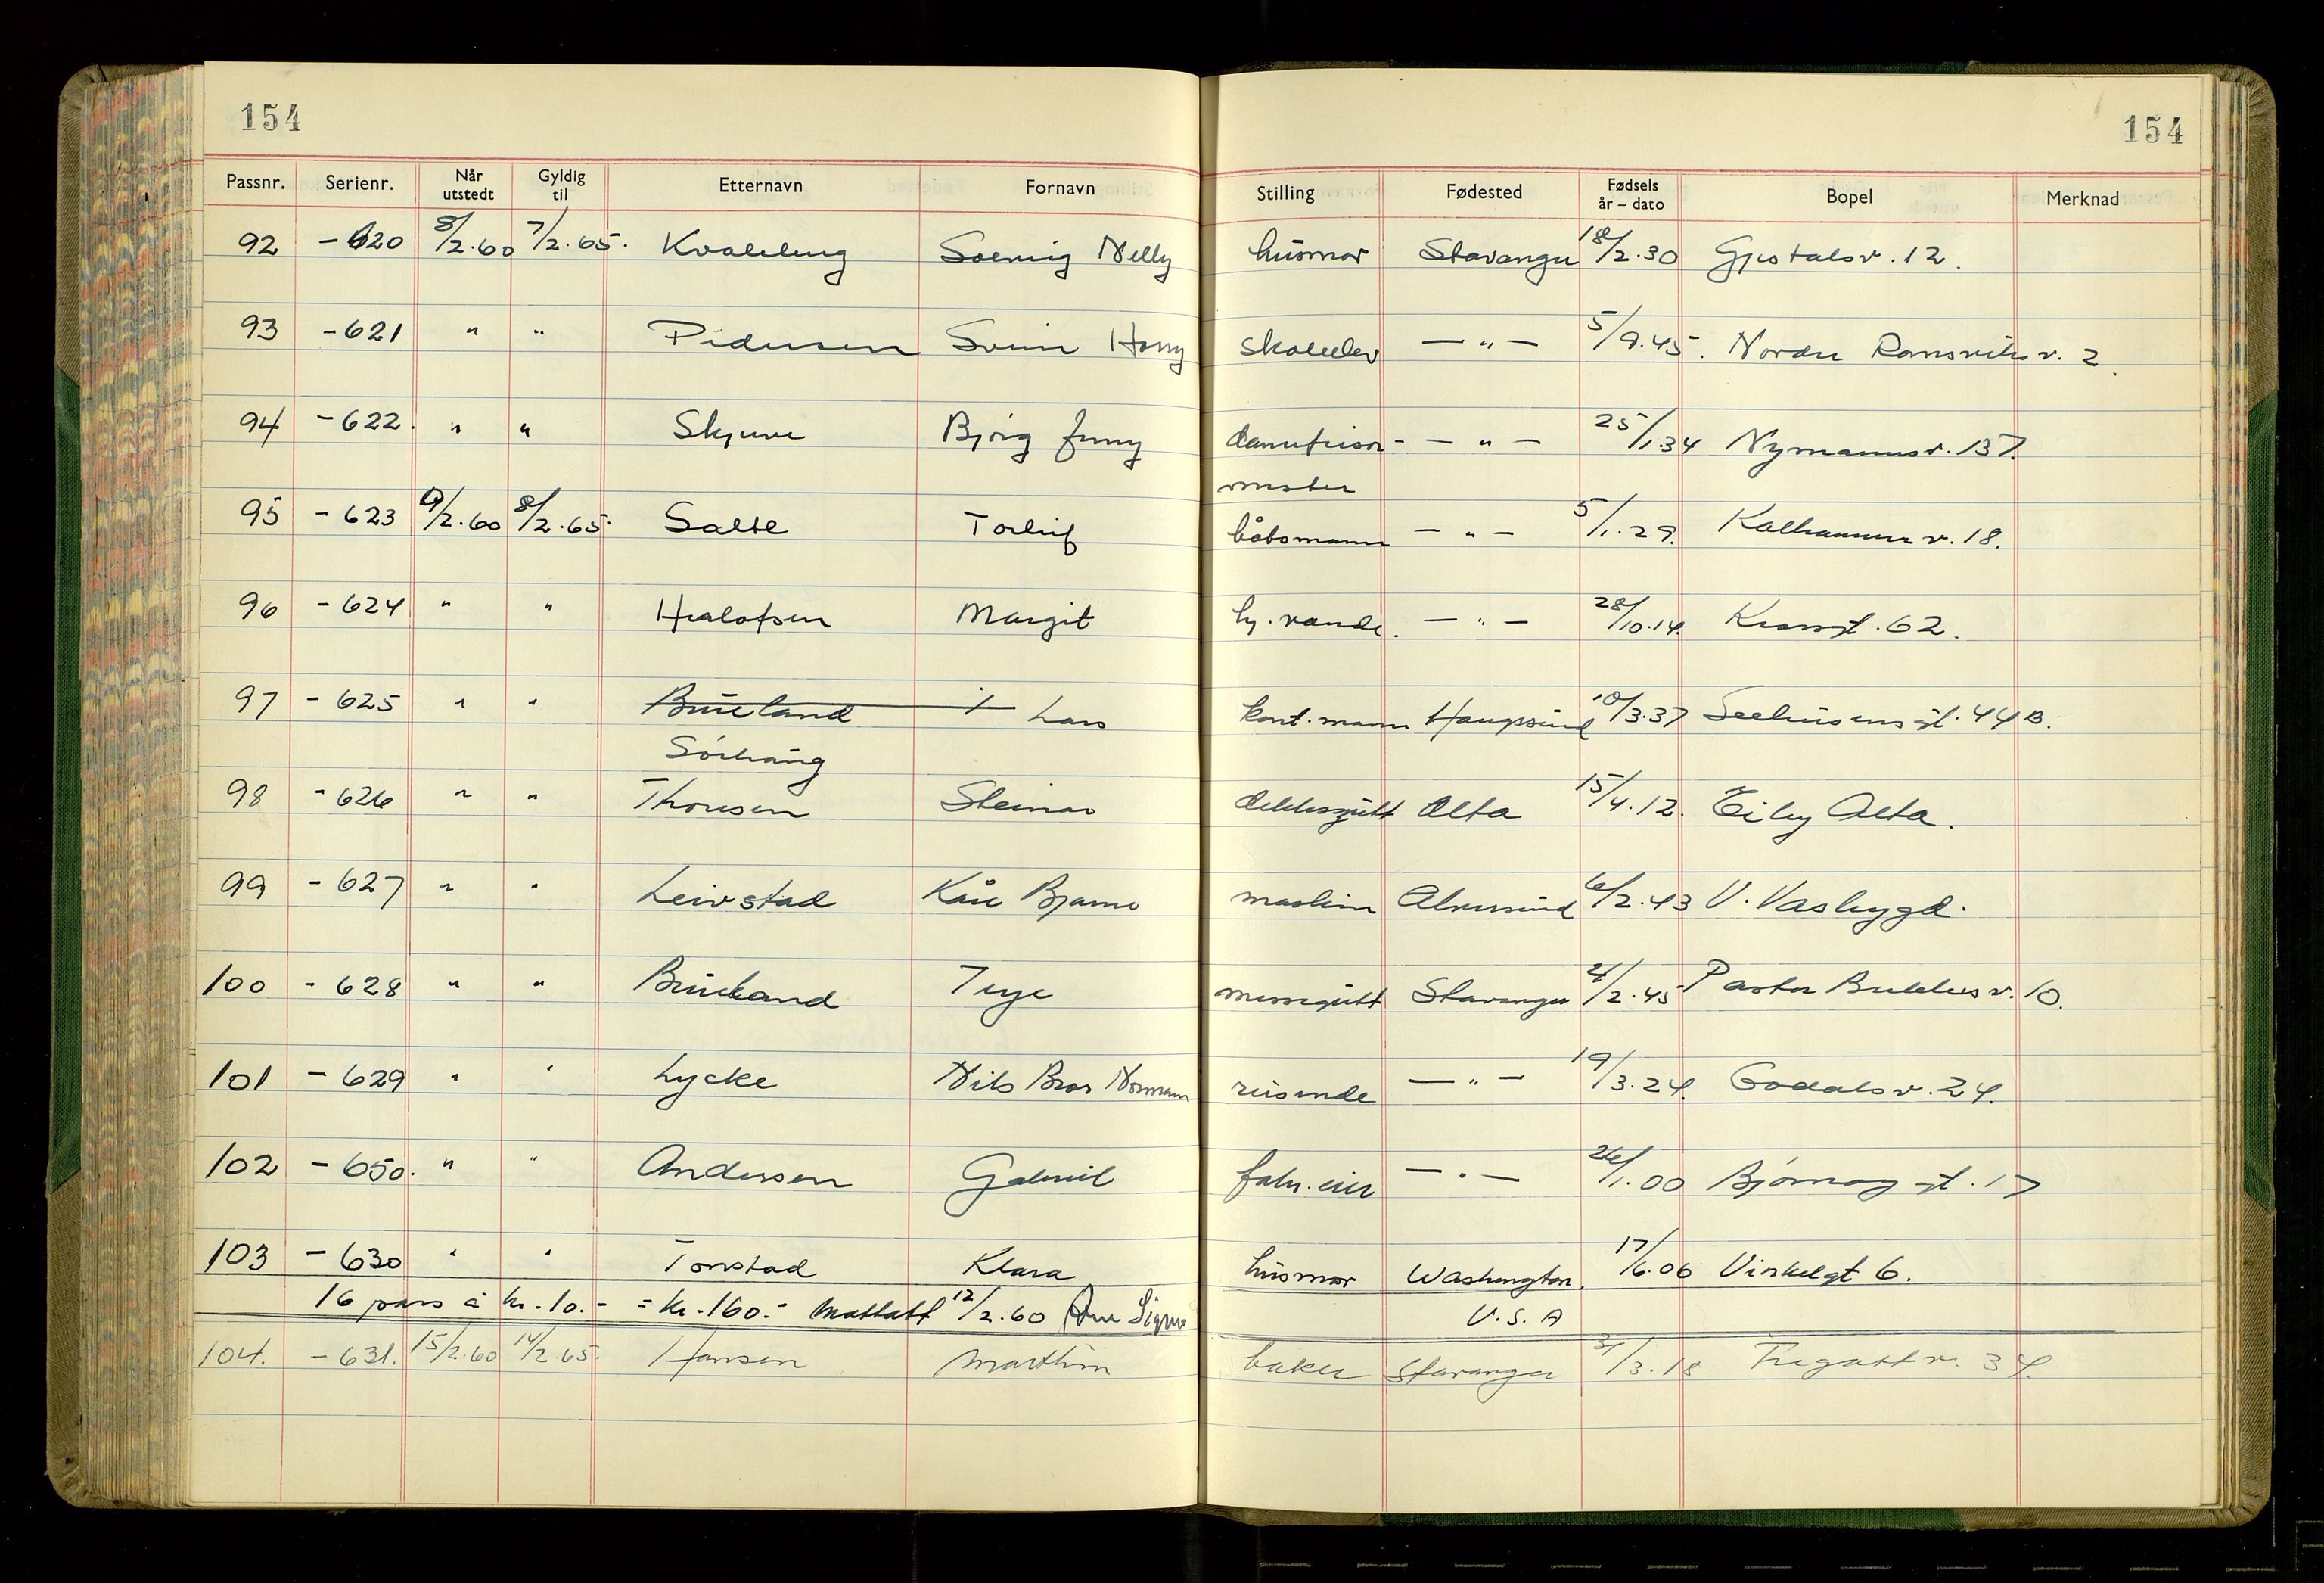 154 154
Passnr. Serienr. Når utstedt Gyldig til Etternavn Fornavn Stilling Fødested Fødsels år – dato Bopel Merknad
92 - 620 8/2.60 7/2.65. Kvaleberg Solveig Nelly husmor Stavanger 18/2.30 Gjestalsv. 12.
93 - 621 " " Pedersen Svein Harry skoleelev — " — 5/9.45. Nordre Ramsvikv. 2.
94 - 622. " " Skjuve Bjørg Jenny damefrisør- — " — 25/1.34 Nymannsv. 137.
mester
95 - 623 9/2.60 8/2.65. Salte Torleif båtsmann — " — 5/1.29. Kalhammerv. 18.
96 - 624 " " Margit — " — 28/10.14. 62.
97 - 625 " " Brueland Lars kont. mann Haugesund 10/3.37 Seehusensgt. 44 B.
Sørhaug
98 - 626 " " Thomsen Steinar dekksgutt Alta 15/4.12. Elby Alta.
99 - 627 " " Leivstad Kåre Bjarne maskin Ålesund 6/2.43 V. Vasbygd.
100 - 628 " " Brueland Terje messegutt Stavanger 21/2.45 Pastor 10.
101 - 629 " " Lycke Nils Bror Normann reisende — " — 19/3.24. Godalsv. 24.
102 - 650. " " Andersen Gabriel fabr. eier — " — 26/1.00 Bjørnøygt. 17
103 - 630 " " Tonstad Klara husmor Washington, 17/6.06 Vinkelgt 6.
16 pass à kr. 10.- = kr. 160.- Mottatt 12/2.60 U.S.A
104. - 631. 15/2.60 14/2.65. Hansen Marthin baker Stavanger 31/3.18 Fregattv. 34.